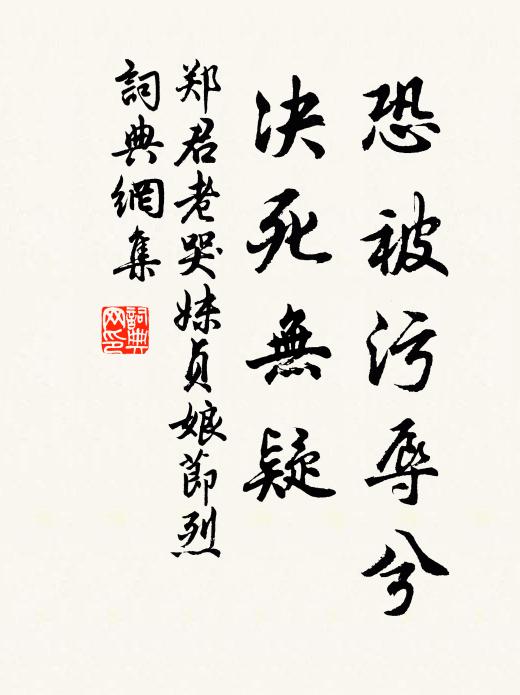 恐被污辱兮
决死無疑
郑君老哭妹貞娘節烈
詞典網集
詞典网印